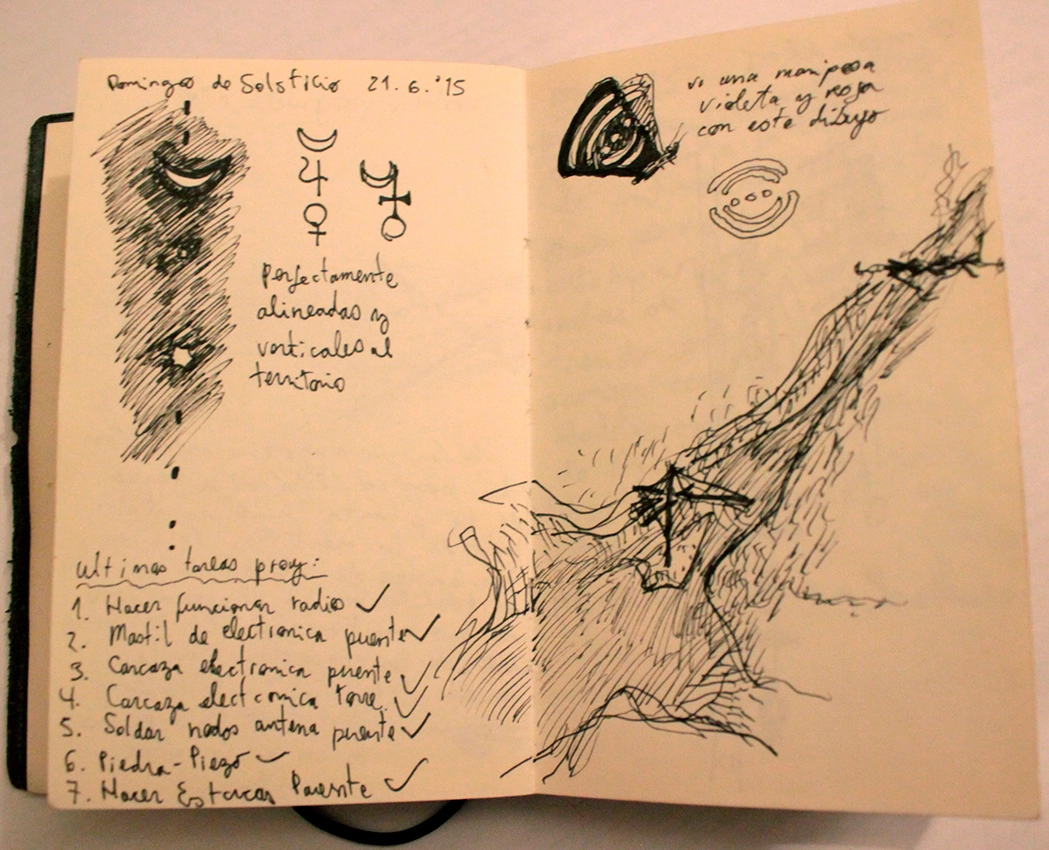 Domingo de Solsticio 21.6.'15
☽
♃
♀
Perfectamente
alineadas y
verticales al
territorio
Ultimas tareas proy:
1. Hacer funcionar radio ✓
2. Mastil de electronica puente ✓
3. Carcaza electronica puente ✓
4. Carcaza electronica torre. ✓
5. Soldar nodos antena puente ✓
6. Piedra-Piezo ✓
7. Hacer Puente ✓
vi una mariposa
violeta y roja
con este dibujo